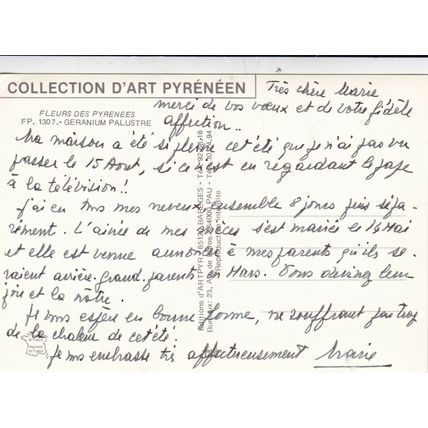 COLLECTION D'ART PYRÉNÉEN
FLEURS DES PYRENEES
FP. 1307.- GERANIUM PALUSTRE
Très chère Marie
merci de vos vœux et de votre fidèle
affection..
Ma maison a été si pleine cet été que je n'ai pas vu
passer le 15 Aout, si ce n'est en regardant le pape
à la télévision!
j'ai eu tous mes neveux ensemble 8 jours puis sépa-
rément. L'ainée de mes nièces s'est mariée le 16 Mai
et elle est venue annoncer à mes parents qu'ils se-
raient arrière-grand-parents en Mars. Vous devinez leur
joie et la nôtre.
Je vous espère en bonne forme, ne souffrant pas trop
de la chaleur de cet été.
Je vous embrasse très affectueusement Marie
Editions d'ARTPYR
Reproduction interdite